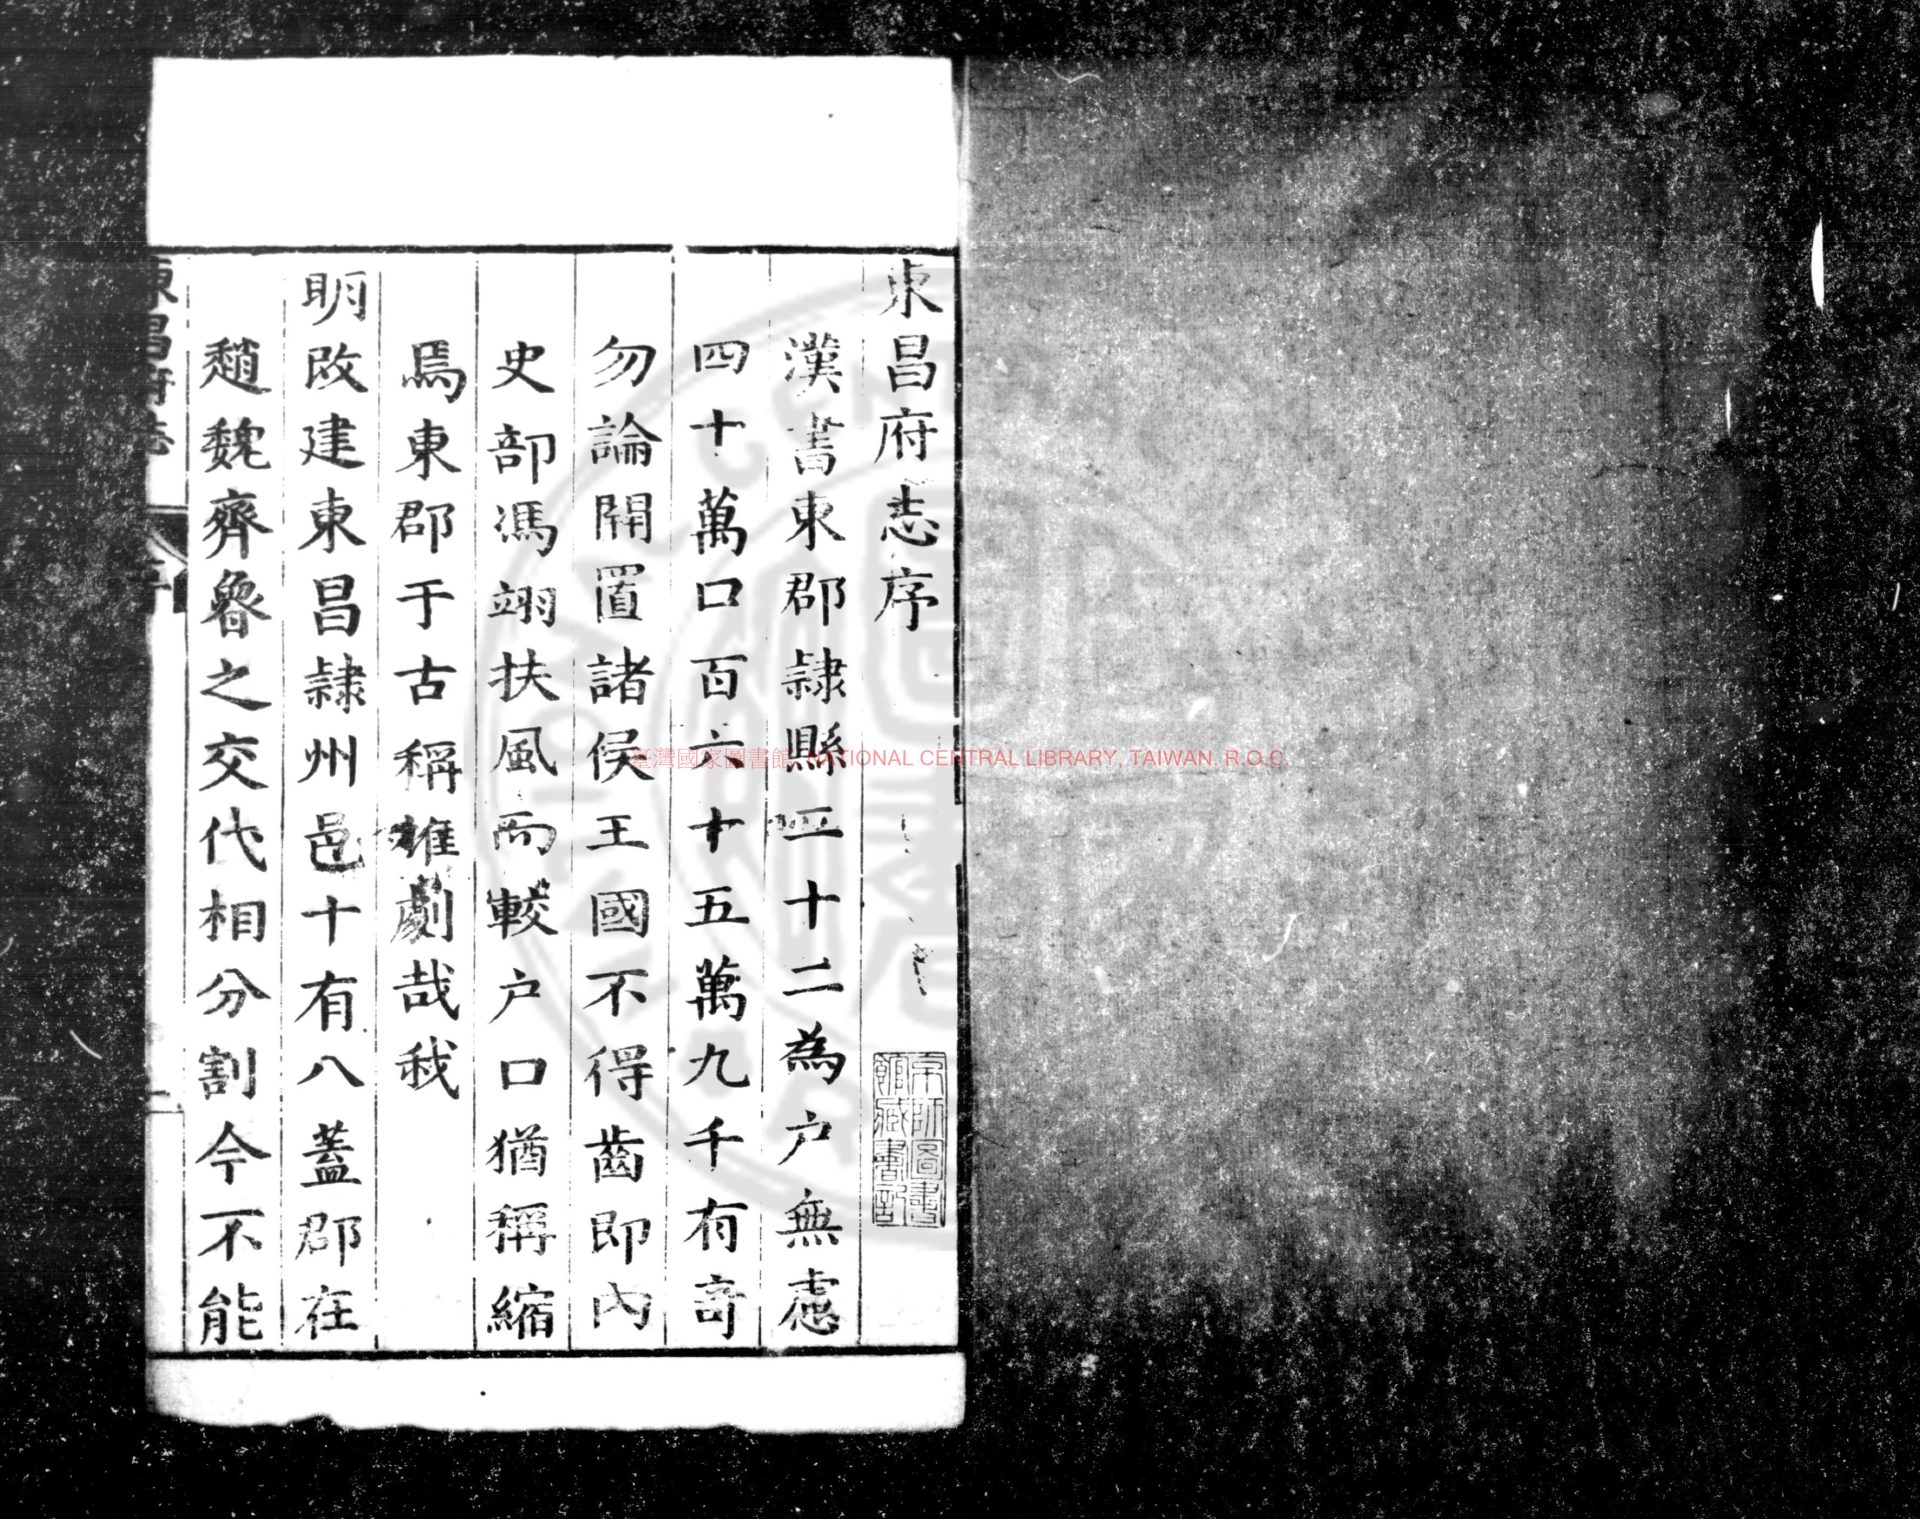 東昌府志序
漢書東郡隷縣二十二為户無慮
四十萬口百六十五萬九千有竒
勿論開置諸侯王國不得齒即内
史部馮翊扶風而較户口猶稱縮
焉東郡于古稱雄劇哉我
明改建東昌隷州邑十有八葢郡在
趙魏齊魯之交代相分割今不能
東昌府志
序
一
京師圖書
館藏書記
臺灣國家圖書館 NATIONAL CENTRAL LIBRARY, TAIWAN. R.O.C.